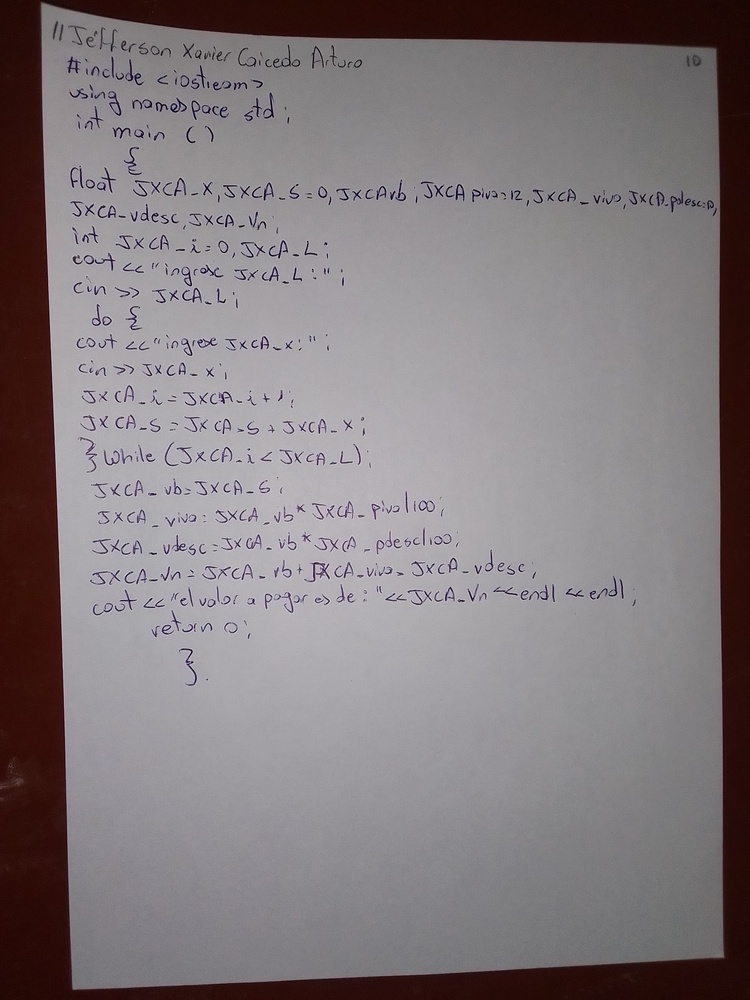 // Jéfferson Xavier Caicedo Arturo
10
#include <iostream>
using namespace std;
int main ()
{
float JXCA_X, JXCA_S=0, JXCAvb, JXCA piva=12, JXCA_viva, JXCA_pdesc=
JXCA_vdesc, JXCA_Vn;
int JXCA_i=0, JXCA_L;
cout <<"ingrese JXCA_L:";
cin >> JXCA_L;
do {
cout <<"ingrese JXCA_x:";
cin >> JXCA_x;
JXCA_i=JXCA_i+1;
JXCA_S=JXCA_S+JXCA_X;
} while (JXCA_i<JXCA_L);
JXCA_vb=JXCA_S;
JXCA_viva=JXCA_vb*JXCA_piva/100;
JXCA_vdesc=JXCA_vb*JXCA_pdesc/100;
JXCA_Vn=JXCA_vb+JXCA_viva-JXCA_vdesc;
cout <<"el valor a pagar es de:"<<JXCA_Vn<<endl<<endl;
return 0;
}.